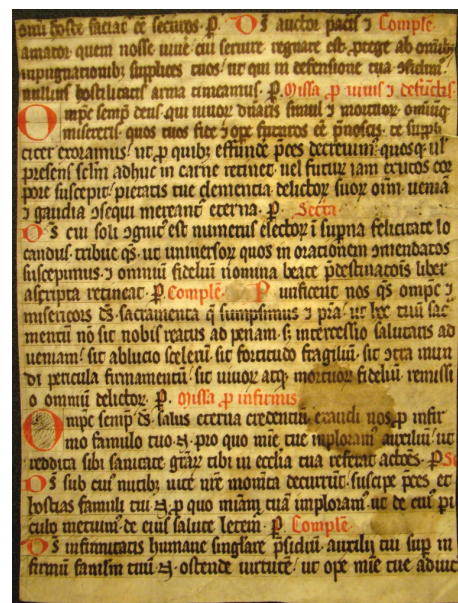 om̄i hoste faciat eē securos. P. Ds auctor pacis ⁊ Comple
amator quem nosse uiuē cui seruire regnare est. ꝓtege ab omībꝫ
inpugnationibꝫ supplices tuos. ut qui in defensione tua ꝯfidim᷒
nullius hostilitatis arma timeamus. P. Missa ꝓ uiuis ⁊ defūctis.
Omp̄c semp̄ deus. qui uiuoꝝ dn̄aris simul ⁊ mortuoꝝ. omīuqꝫ
misereris. quos tuos fide ⁊ oꝑe futuros eē p̄noscis. te suppli
citer exoramus. ut ꝓ quibꝫ effundē p̄ces decreuim᷒. quosqꝫ uł
presens sclm̄ adhuc in carne retinet. uel futuꝝ iam exutos cor
pore suscepit. pietatis tue clementia delictoꝝ suoꝝ oīm ueniā
⁊ gaudia ꝯsequi mereant᷑ eterna. P. Secr̄a
Ds cui soli ꝯgnit᷒ est numerus electoꝝ ī sup̄na felicitate lo
candus. tribue qs̄. ut uniuersoꝝ quos in orationem ꝯmendatos
suscepimus. ⁊ omniū fideliū nomina beate p̄destinatōis liber
ascripta retineat. P. Comple. Purificent nos qs̄ omp̄c ⁊
misericors ds̄. sacramenta q̄ sumpsimus ⁊ p̄ra. ut hoc tuū sac̄
mentū nō sit nobis reatus ad penam. sꝫ intercessio salutaris ad
ueniam. sit ablucio scelerū. sit fortitudo fragiliū. sit ꝯtra mun
di pericula firmamentū. sit uiuoꝝ atqꝫ mortuoꝝ fideliū remissi
o omniū delictoꝝ. P. Missa ꝓ infirmis
Omp̄c semp̄ ds̄. salus eterna credentiū. exaudi nos ꝓ infir
mo famulo tuo .N. pro quo mīe tue inploram᷒ auxiliū. ut
reddita sibi sanitate gr̄aꝝ tibi in ecclia tua referat actōes. P. Se
Ds sub cui᷒ nutibꝫ uite nr̄e momēta decurrūt. suscipe p̄ces. et
hostias famuli tui .N. ꝓ quo miam̄ tuā imploram᷒. ut de cui᷒ ꝑi
culo metuim᷒. de eius salute letem᷒. P. Comple.
Ds infirmitatis humane singlare p̄sidiū. auxilij tui sup̄ in
firmū famlm̄ tuū .N. ostende uirtutē. ut ope mīe tue adiut᷒